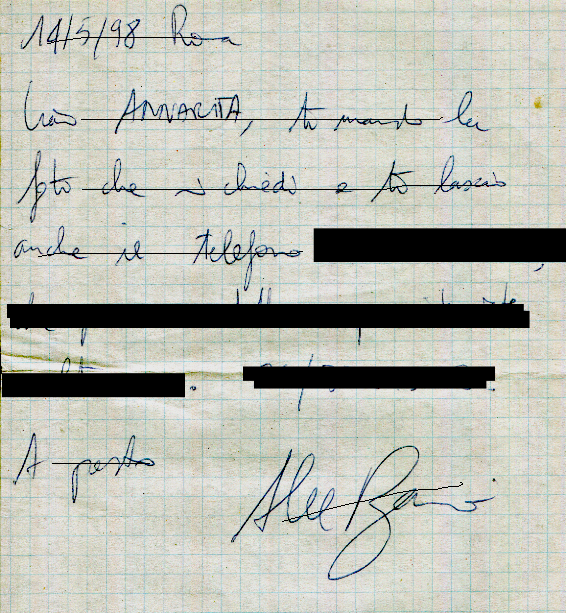 14/5/98 Roma
Ciao ANNARITA, ti mando la
foto che mi chiedi e ti lascio
anche il telefono
A presto